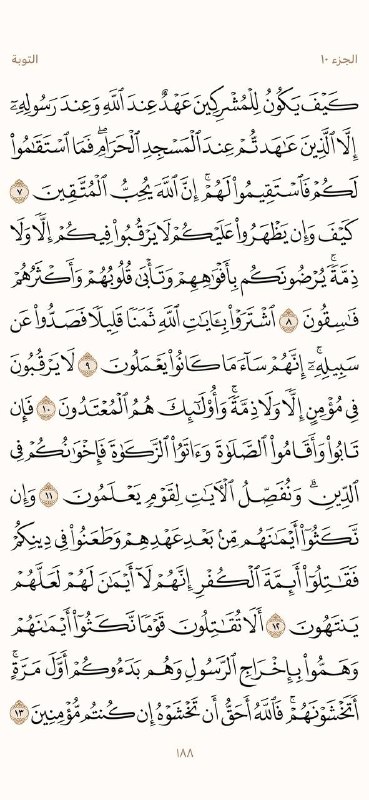 الجزء ١٠ التوبة
كَيْفَ يَكُونُ لِلْمُشْرِكِينَ عَهْدٌ عِندَ ٱللَّهِ وَعِندَ رَسُولِهِۦٓ
إِلَّا ٱلَّذِينَ عَٰهَدتُّمْ عِندَ ٱلْمَسْجِدِ ٱلْحَرَامِ ۖ فَمَا ٱسْتَقَٰمُوا۟
لَكُمْ فَٱسْتَقِيمُوا۟ لَهُمْ ۚ إِنَّ ٱللَّهَ يُحِبُّ ٱلْمُتَّقِينَ ٧
كَيْفَ وَإِن يَظْهَرُوا۟ عَلَيْكُمْ لَا يَرْقُبُوا۟ فِيكُمْ إِلًّا وَلَا
ذِمَّةً ۚ يُرْضُونَكُم بِأَفْوَٰهِهِمْ وَتَأْبَىٰ قُلُوبُهُمْ وَأَكْثَرُهُمْ
فَٰسِقُونَ ٨ ٱشْتَرَوْا۟ بِـَٔايَٰتِ ٱللَّهِ ثَمَنًا قَلِيلًا فَصَدُّوا۟ عَن
سَبِيلِهِۦٓ ۚ إِنَّهُمْ سَآءَ مَا كَانُوا۟ يَعْمَلُونَ ٩ لَا يَرْقُبُونَ
فِى مُؤْمِنٍ إِلًّا وَلَا ذِمَّةً ۚ وَأُو۟لَٰٓئِكَ هُمُ ٱلْمُعْتَدُونَ ١٠ فَإِن
تَابُوا۟ وَأَقَامُوا۟ ٱلصَّلَوٰةَ وَءَاتَوُا۟ ٱلزَّكَوٰةَ فَإِخْوَٰنُكُمْ فِى
ٱلدِّينِ ۗ وَنُفَصِّلُ ٱلْـَٔايَٰتِ لِقَوْمٍ يَعْلَمُونَ ١١ وَإِن
نَّكَثُوٓا۟ أَيْمَٰنَهُم مِّنۢ بَعْدِ عَهْدِهِمْ وَطَعَنُوا۟ فِى دِينِكُمْ
فَقَٰتِلُوٓا۟ أَئِمَّةَ ٱلْكُفْرِ ۙ إِنَّهُمْ لَآ أَيْمَٰنَ لَهُمْ لَعَلَّهُمْ
يَنتَهُونَ ١٢ أَلَا تُقَٰتِلُونَ قَوْمًا نَّكَثُوٓا۟ أَيْمَٰنَهُمْ
وَهَمُّوا۟ بِإِخْرَاجِ ٱلرَّسُولِ وَهُم بَدَءُوكُمْ أَوَّلَ مَرَّةٍ ۚ
أَتَخْشَوْنَهُمْ ۚ فَٱللَّهُ أَحَقُّ أَن تَخْشَوْهُ إِن كُنتُم مُّؤْمِنِينَ ١٣
١٨٨